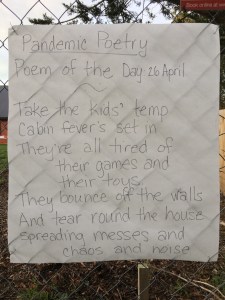 Pandemic Poetry
Poem of the Day 26 April
Take the kids' temp
Cabin fever's set in
They're all tired of
their games and
their toys
They bounce off the walls
And tear round the house
spreading messes and
chaos and noise